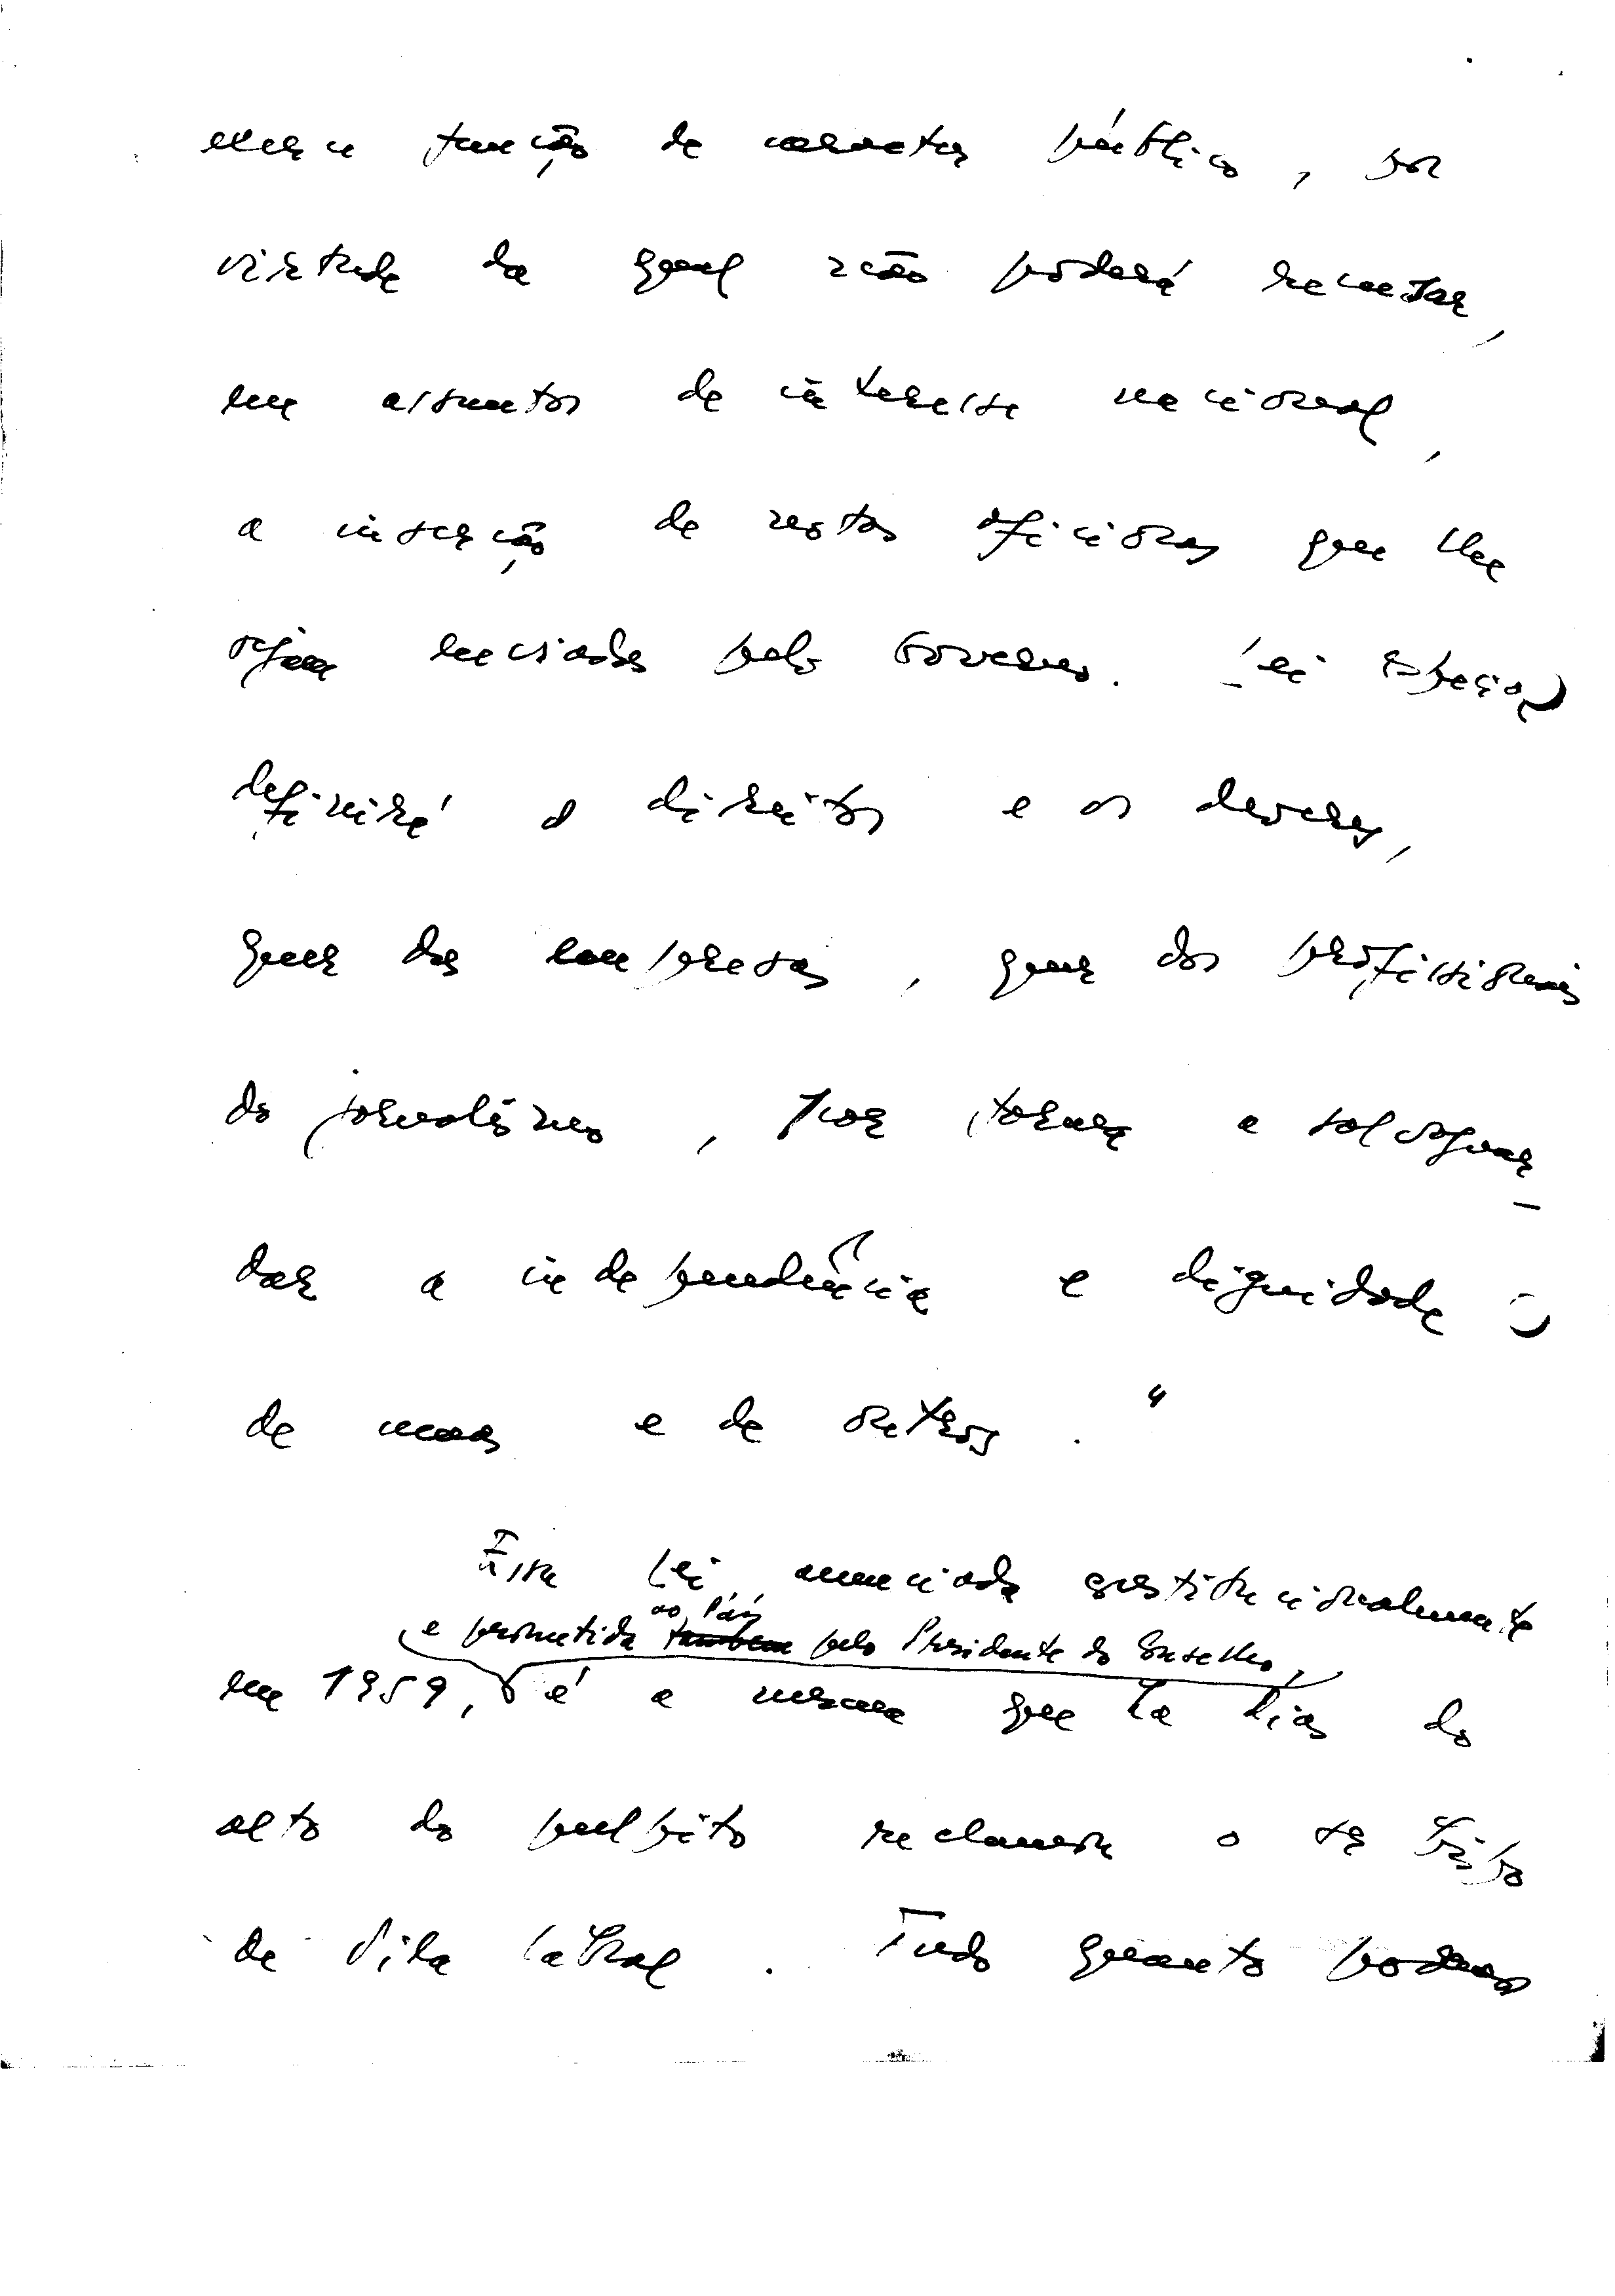 exerce função de caracter público, por
virtude da qual não poderá recusar,
em assuntos de interesse nacional,
a inserção de notas oficiosas que lhe
sejam enviadas pelo Governo. Lei especial
definirá os direitos e os deveres,
quer das empresas, quer dos profissionais
do jornalismo, por forma a salvaguar-
dar a independência e dignidade
de umas e de outros."
Essa Lei, anunciada constitucionalmente
e prometida ao País também pelo Presidente do Conselho,
em 1959, é a mesma que há dias do
alto do púlpito reclamou o Sr Bispo
de Vila Cabral. Tudo quanto podemos